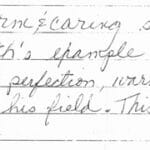 rm & caring s
th's example
perfection, war
his field. This